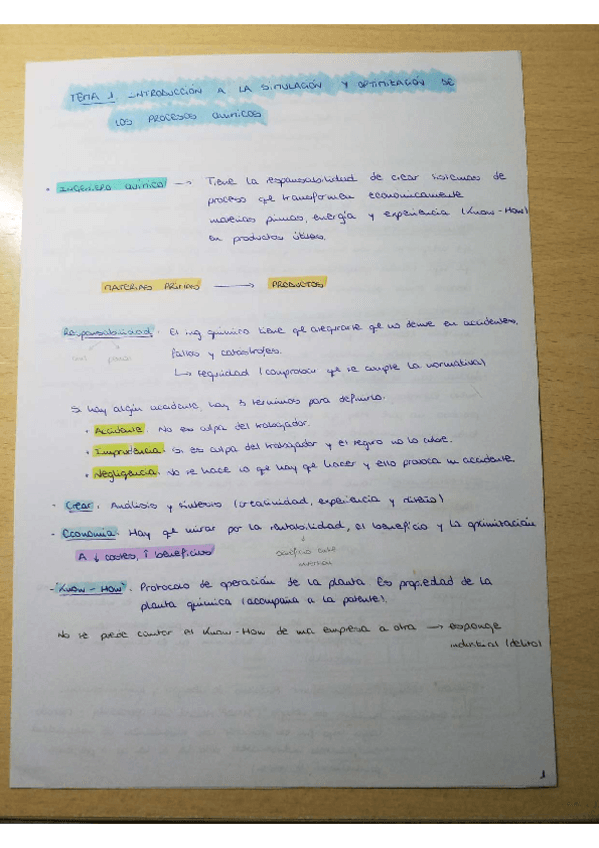 TEMA 1. INTRODUCCIÓN A LA SIMULACIÓN Y OPTIMIZACIÓN DE
LOS PROCESOS QUÍMICOS
• INGENIERO QUÍMICO → Tiene la responsabilidad de crear sistemas de
proceso que transformen económicamente
materias primas, energía y experiencia (Know-How)
en productos útiles.
MATERIAS PRIMAS → PRODUCTOS
Responsabilidad. El ing químico tiene que asegurarse que no derive en accidentes,
civil penal
fallos y catástrofes.
↳ seguridad (comprobar que se cumple la normativa)
Si hay algún accidente, hay 3 términos para definirlo.
• Accidente. No es culpa del trabajador.
• Imprudencia. Si es culpa del trabajador y el seguro no lo cubre.
• Negligencia. No se hace lo que hay que hacer y ello provoca un accidente.
- Crear. Análisis y síntesis (creatividad, experiencia y diseño)
- Economía. Hay que mirar por la rentabilidad, el beneficio y la optimización
A ↓ costes, ↑ beneficios
beneficio entre
inversión
- "Know-How". Protocolo de operación de la planta. Es propiedad de la
planta química (acompaña a la patente).
No se puede contar el Know-How de una empresa a otra → espionage
industrial (delito)
1